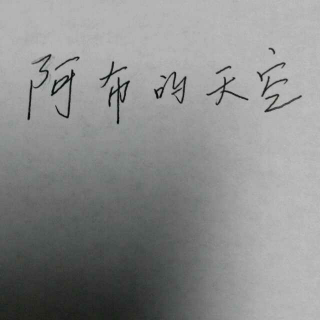 阿布的天空